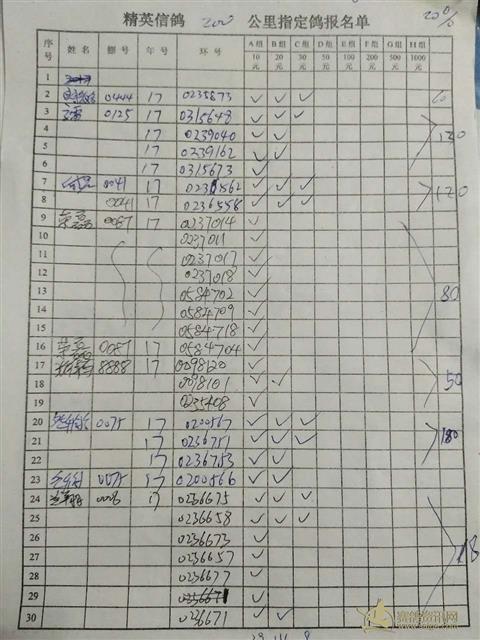 精英信鸽 200 公里指定鸽报名单 20%
序号 姓名 棚号 年号 环号 A组10元 B组20元 C组30元 D组50元 E组100元 F组200元 G组500元 H组1000元
1
2 0444 17 0235873 ✓ ✓ ✓ 60
3 0125 17 0315648 ✓ ✓ ✓
4 17 0239040 ✓ ✓ 120
5 17 0239162 ✓ ✓
6 17 0315673 ✓
7 0041 17 0231562 ✓ ✓ ✓ 120
8 0041 17 0236558 ✓ ✓ ✓
9 荣磊 0087 17 0237014 ✓
10 0237011 ✓
11 0237017 ✓
12 0237018 ✓
13 0584702 ✓ 80
14 0584709 ✓
15 0584718 ✓
16 荣磊 0087 17 0584704 ✓
17 8888 17 0098120 ✓
18 0098101 ✓ ✓ 50
19 0235408 ✓
20 0075 17 0200567 ✓ ✓ ✓
21 17 0236751 ✓ ✓ ✓ 180
22 17 0236753 ✓ ✓
23 0075 17 0200566 ✓ ✓
24 0006 17 0236675 ✓ ✓ ✓
25 0236658 ✓ ✓ ✓
26 0236673 ✓
27 0236657 ✓
28 0236677 ✓
29 ✓
30 0236671 ✓ ✓